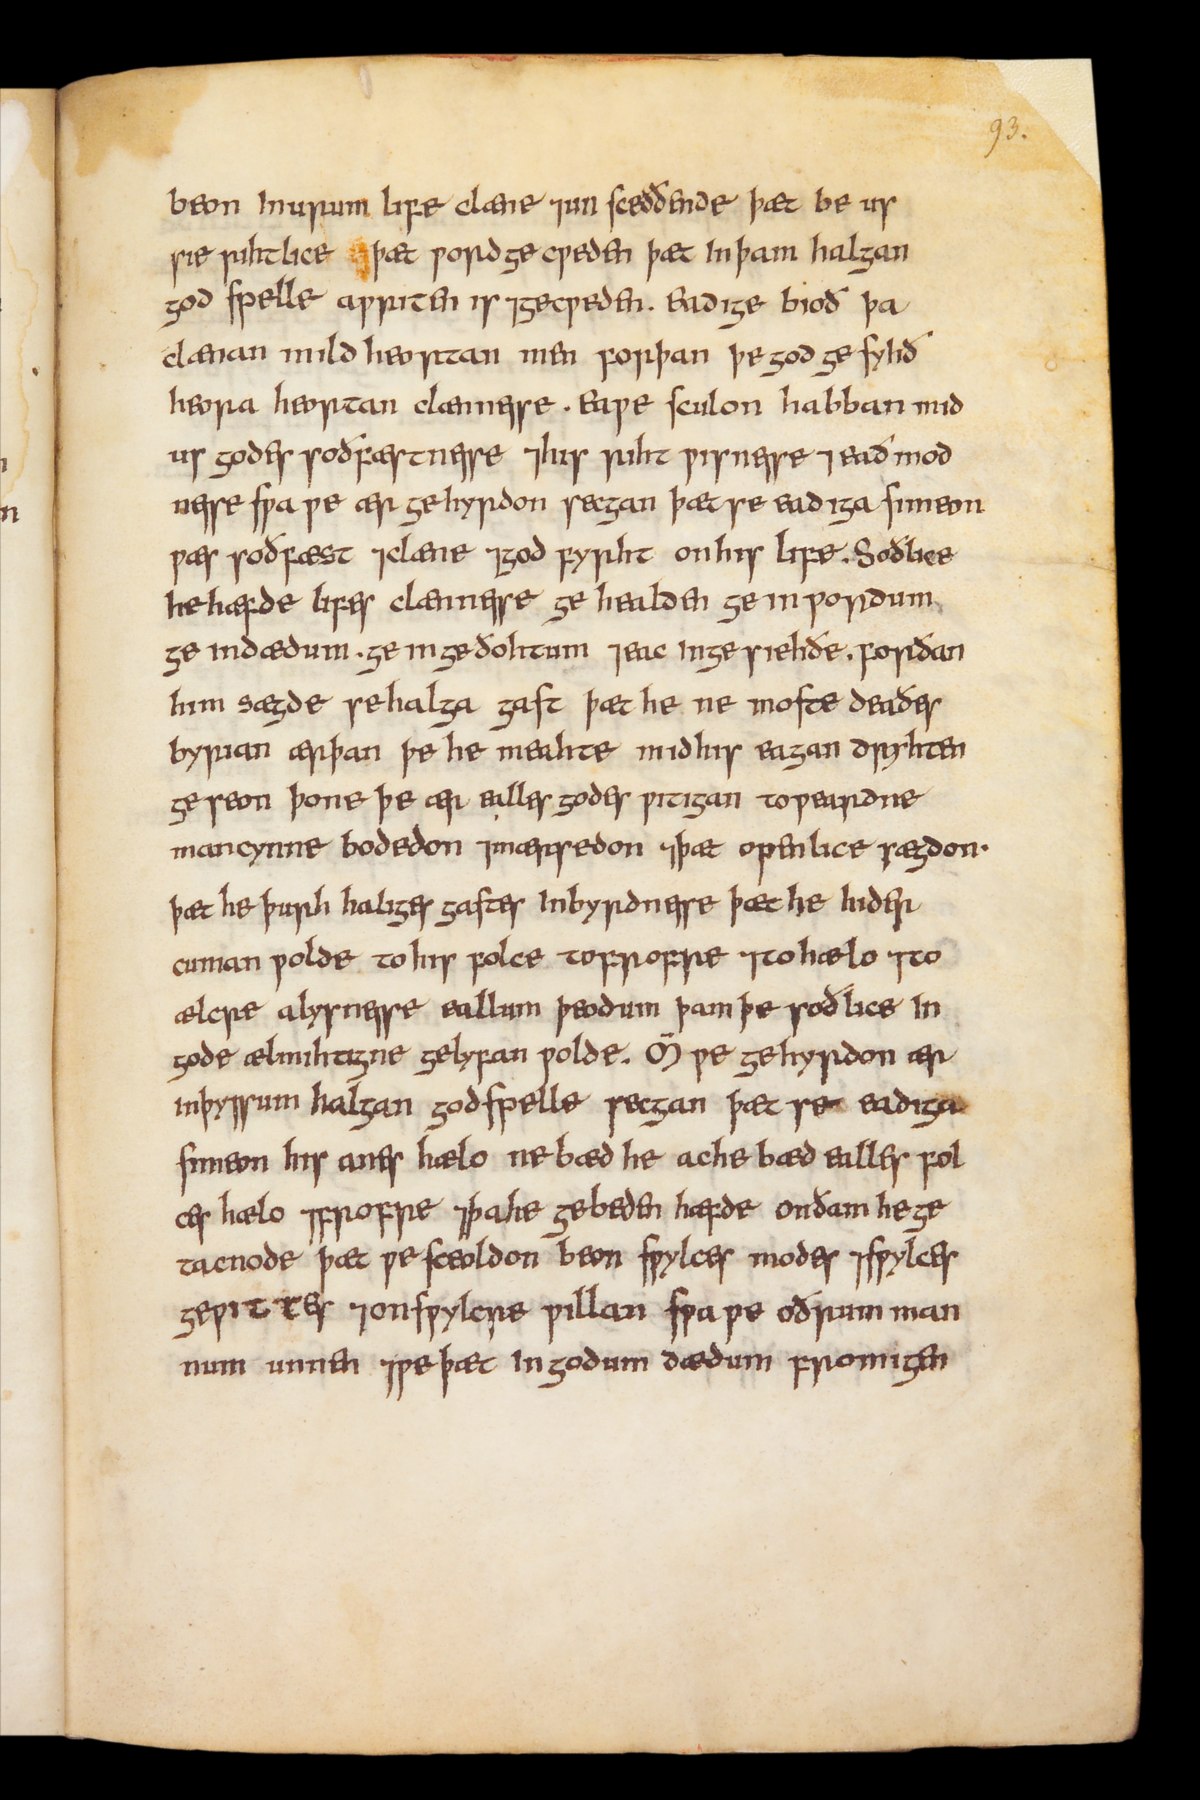 93.
beon in urum life clæne ⁊ un sceððende þæt be us
sie rihtlice þæt word ge cweden þæt in þam halgan
god spelle awriten is ⁊ gecweden. eadige bioð þa
clænan mild heortan men forþan þe god ge syhð
heora heortan clænnesse. eawe sculon habban mid
us godes soðfæstnesse ⁊ his riht wisnesse ⁊ eað mod
nesse swa we ær gehyrdon secgan þæt se eadiga simeon
wæs soðfæst ⁊ clæne ⁊ god fyrht on his life. Soðlice
he hæfde lifes clænnesse ge healden ge in wordum
ge in dædum. ge in geðohtum ⁊ eac in ge siehðe. forðan
him sægde se halga gast þæt he ne moste deaðes
byrian ærþan þe he meahte mid his eagan dryhten
ge seon þone þe ær ealles godes witigan toweardne
mancynne bodedon ⁊ mærsedon ⁊ þæt openlice sægdon.
þæt he þurh haliges gastes inbyrdnesse þæt he hider
cuman wolde to his folce to frofre ⁊ to hælo ⁊ to
ælcre alysnesse eallum þeodum þam þe soðlice in
gode ælmihtigne gelyfan wolde. M̄ we gehyrdon ær
in þyssum halgan godspelle secgan þæt se eadiga
simeon his anes hælo ne bæd he ac he bæd ealles fol
ces hælo ⁊ frofre ⁊ þa he gebeden hæfde on ðam he ge
tacnode þæt we sceoldon beon swylces modes ⁊ swylces
gewittes ⁊ on swylcre willan swa we oðrum man
num unnen ⁊ we þæt in godum dædum fromigen